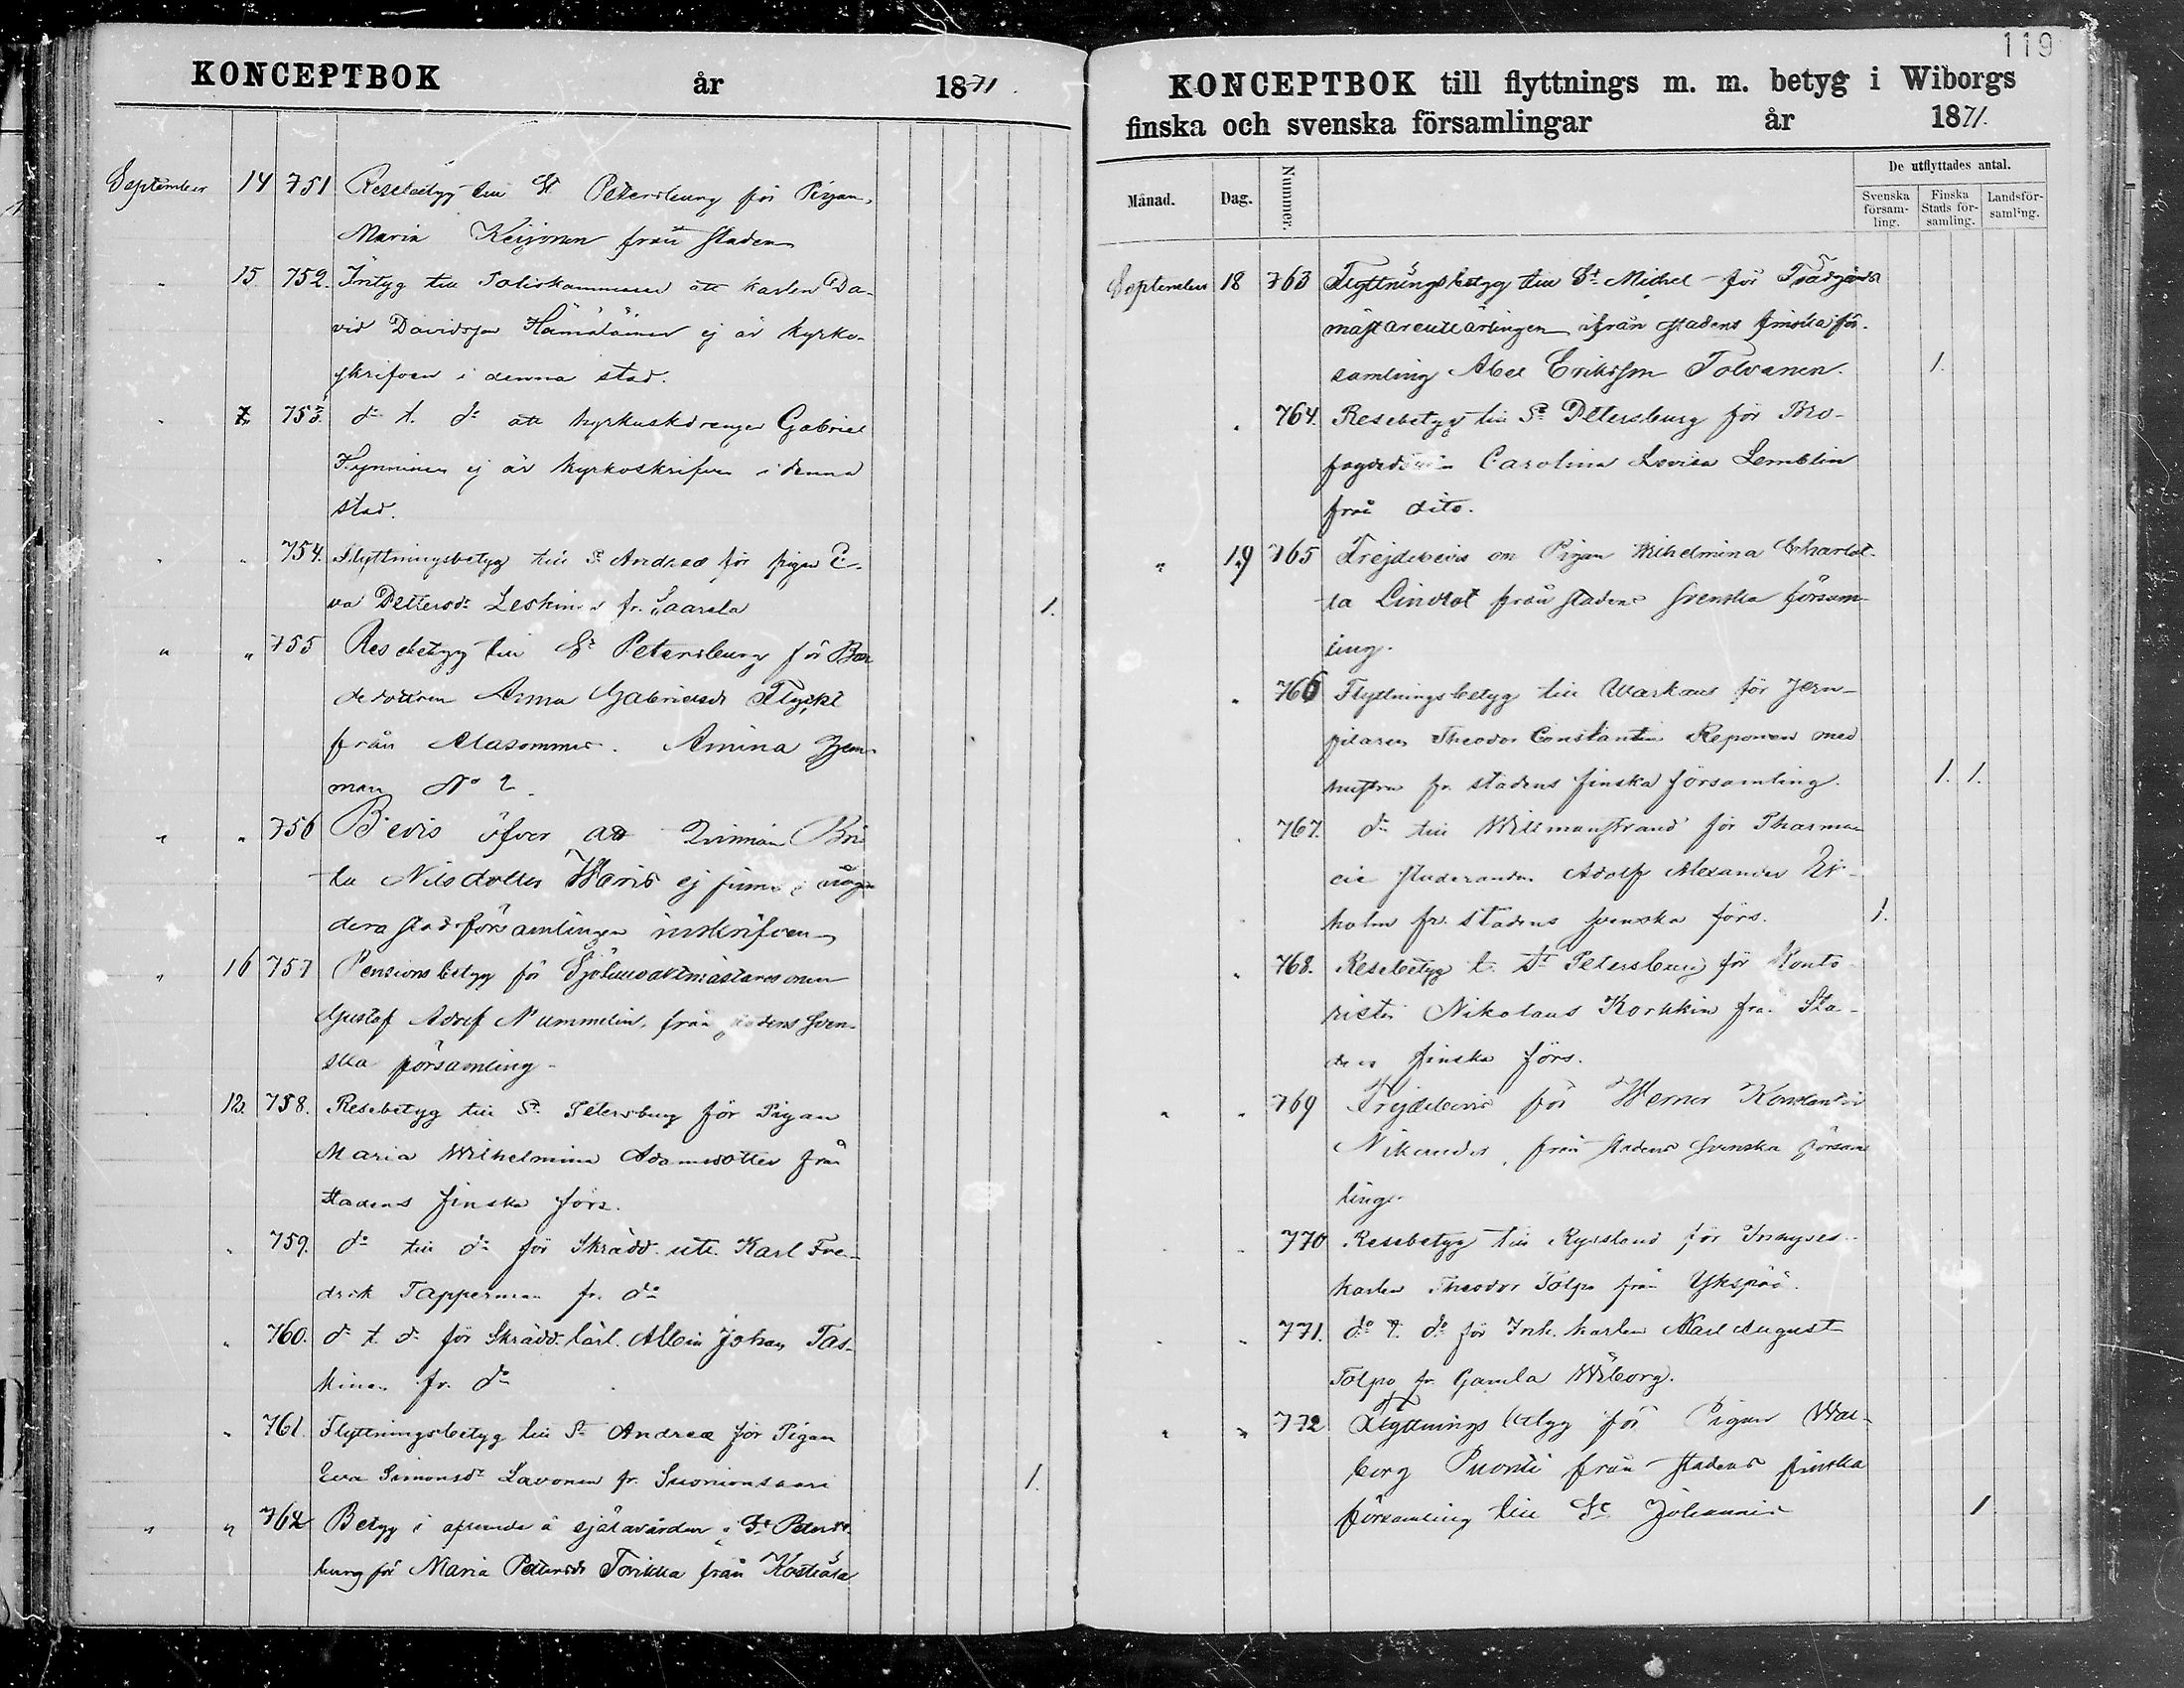 119
KONCEPTBOK år 1871.
September 14 751 Resebetyg till St Petersburg för Pigan,
Maria Keijonen från staden
" 15 752. Intyg till Poliskammaren att karlen Da-
vid Davidsson Hämäläinen ej är kyrko-
skrifven i denna stad.
" 753. do t. do att kyrkuskdrengen Gabriel
Hynninen ej är kyrkoskrifven i denna
stad.
" " 754. Flyttningsbetyg till St Andreæ för pigan E-
va Pettersdr Leskinen fr. Saarela 1.
" " 755 Resebetyg till St Petersburg för Bon
dedottren Anna Gabrielsdr Flyckt
från Alasommee. Amina
man No 2.
" " 756 Bevis öfver att Qvinnan Bri
ta Nilsdotter Waris ej finnes i någon
dera stadsförsamlingen inskrifven
" 16 757 Pensionsbetyg för
Gustaf Adolf Nummelin, från stadens Sven-
ska församling
18. 758. Resebetyg till St. Petersburg för Pigan
Maria Wilhelmina Adamsdotter från
stadens finska förs.
" 759. do till do för Skrädd. ute. Karl Fre-
drik Tapperman fr. do
" 760. do t. do för Skrädd. lärl. Albin Johan Tas-
kinen fr. do
" 761. Flyttningsbetyg till St Andreæ för Pigan
Eva Simonsdr Lavonen fr. Suonionsaari 1.
" " 762 Betyg i afseende å själavården i St Peters-
burg för Maria Pettersdr Torikka från Kostiala
KONCEPTBOK till flyttnings m. m. betyg i Wiborgs
finska och svenska församlingar år 1871.
Månad. Dag. Nummer. De utflyttades antal.
Svenska församling. Finska Stads församling. Landsförsamling.
September 18 763 Flyttningsbetyg till St. Michel för Trädgårds
mästareenlärlingen ifrån stadens finska för-
samling Abel Eriksson Tolvanen. 1.
" 764. Resebetyg till St Petersburg för Bro-
Carolina Lovisa Lemblin
från dito.
" 19 765 Frejdebevis om Pigan Wilhelmina Charlot-
ta Lindlöf från stadens Svenska försam-
ling.
" 766 Flyttningsbetyg till Warkaus för Jern-
filaren Theodor Constantin Reponen med
hustru fr. stadens finska församling. 1. 1.
" 767. do till Willmanstrand för Pharma-
cie studeranden Adolf Alexander Ek-
holm fr. stadens svenska förs. 1.
" 768. Resebetyg t. St Petersburg för Konto-
risten Nikolaus Korkkin frå. Sta-
dens finska förs.
" " 769 Frejdebevis för Werner Konstantin
Nikander, från stadens Svenska försam
ling.
" " 770 Resebetyg till Ryssland för Inhyses-
karlen Theodor Tolpo från Ykspää.
" " 771. do t. do för Inh. karlen Karl August
Tolpo fr. Gamla Wiborg.
" " 772 Flyttnings betyg för Pigan Wal-
borg Puonti från stadens finska
församling till St Johannis 1